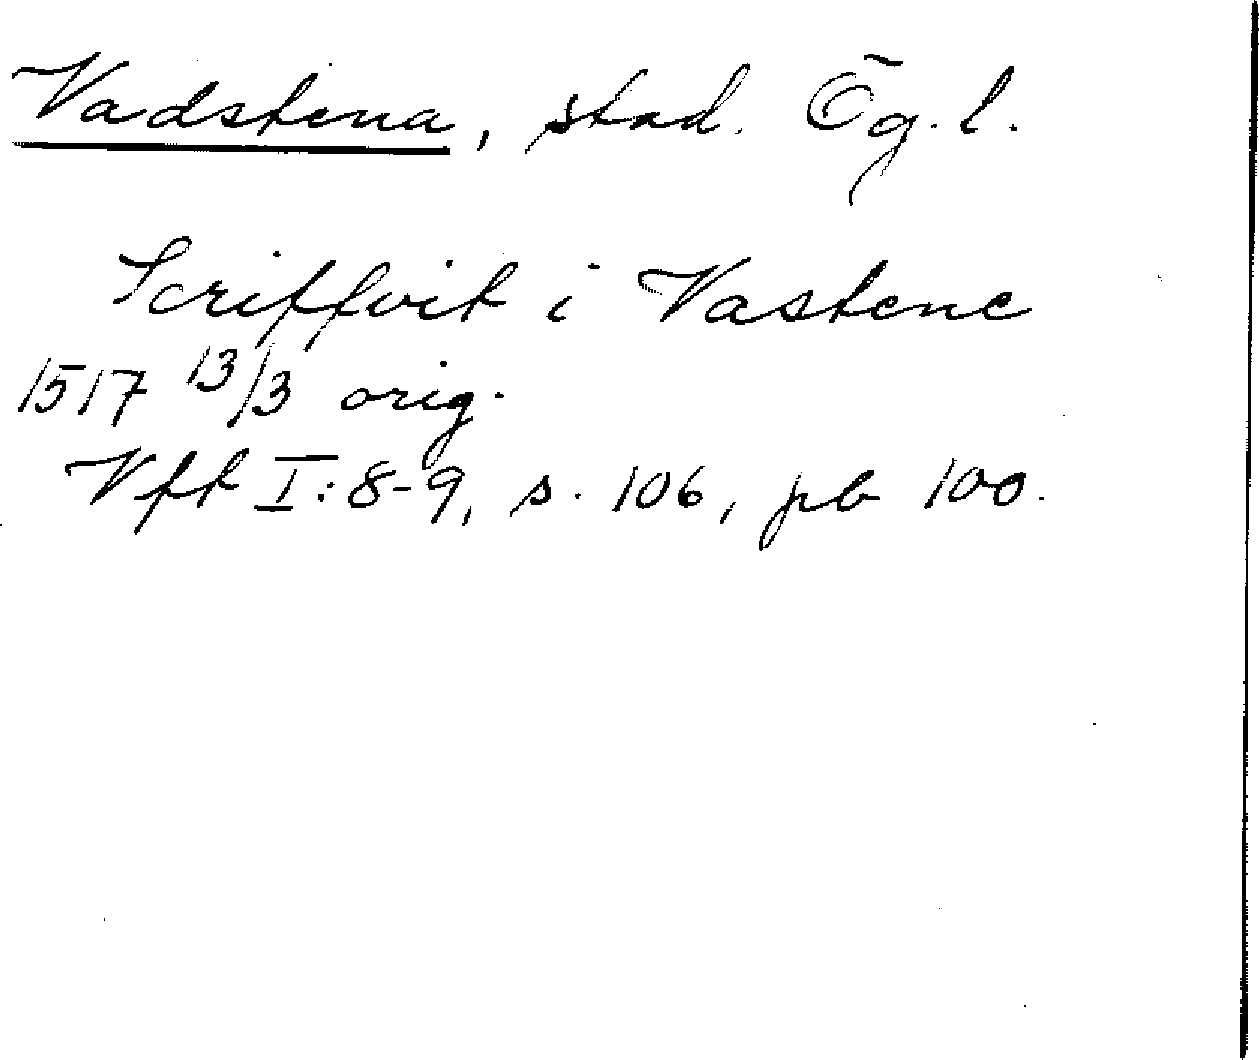 Vadstena, stad. Ög. l.
Scriffvit i Vastene
1517 13/3 orig.
Vfk I: 8-9, s. 106, pb 100.